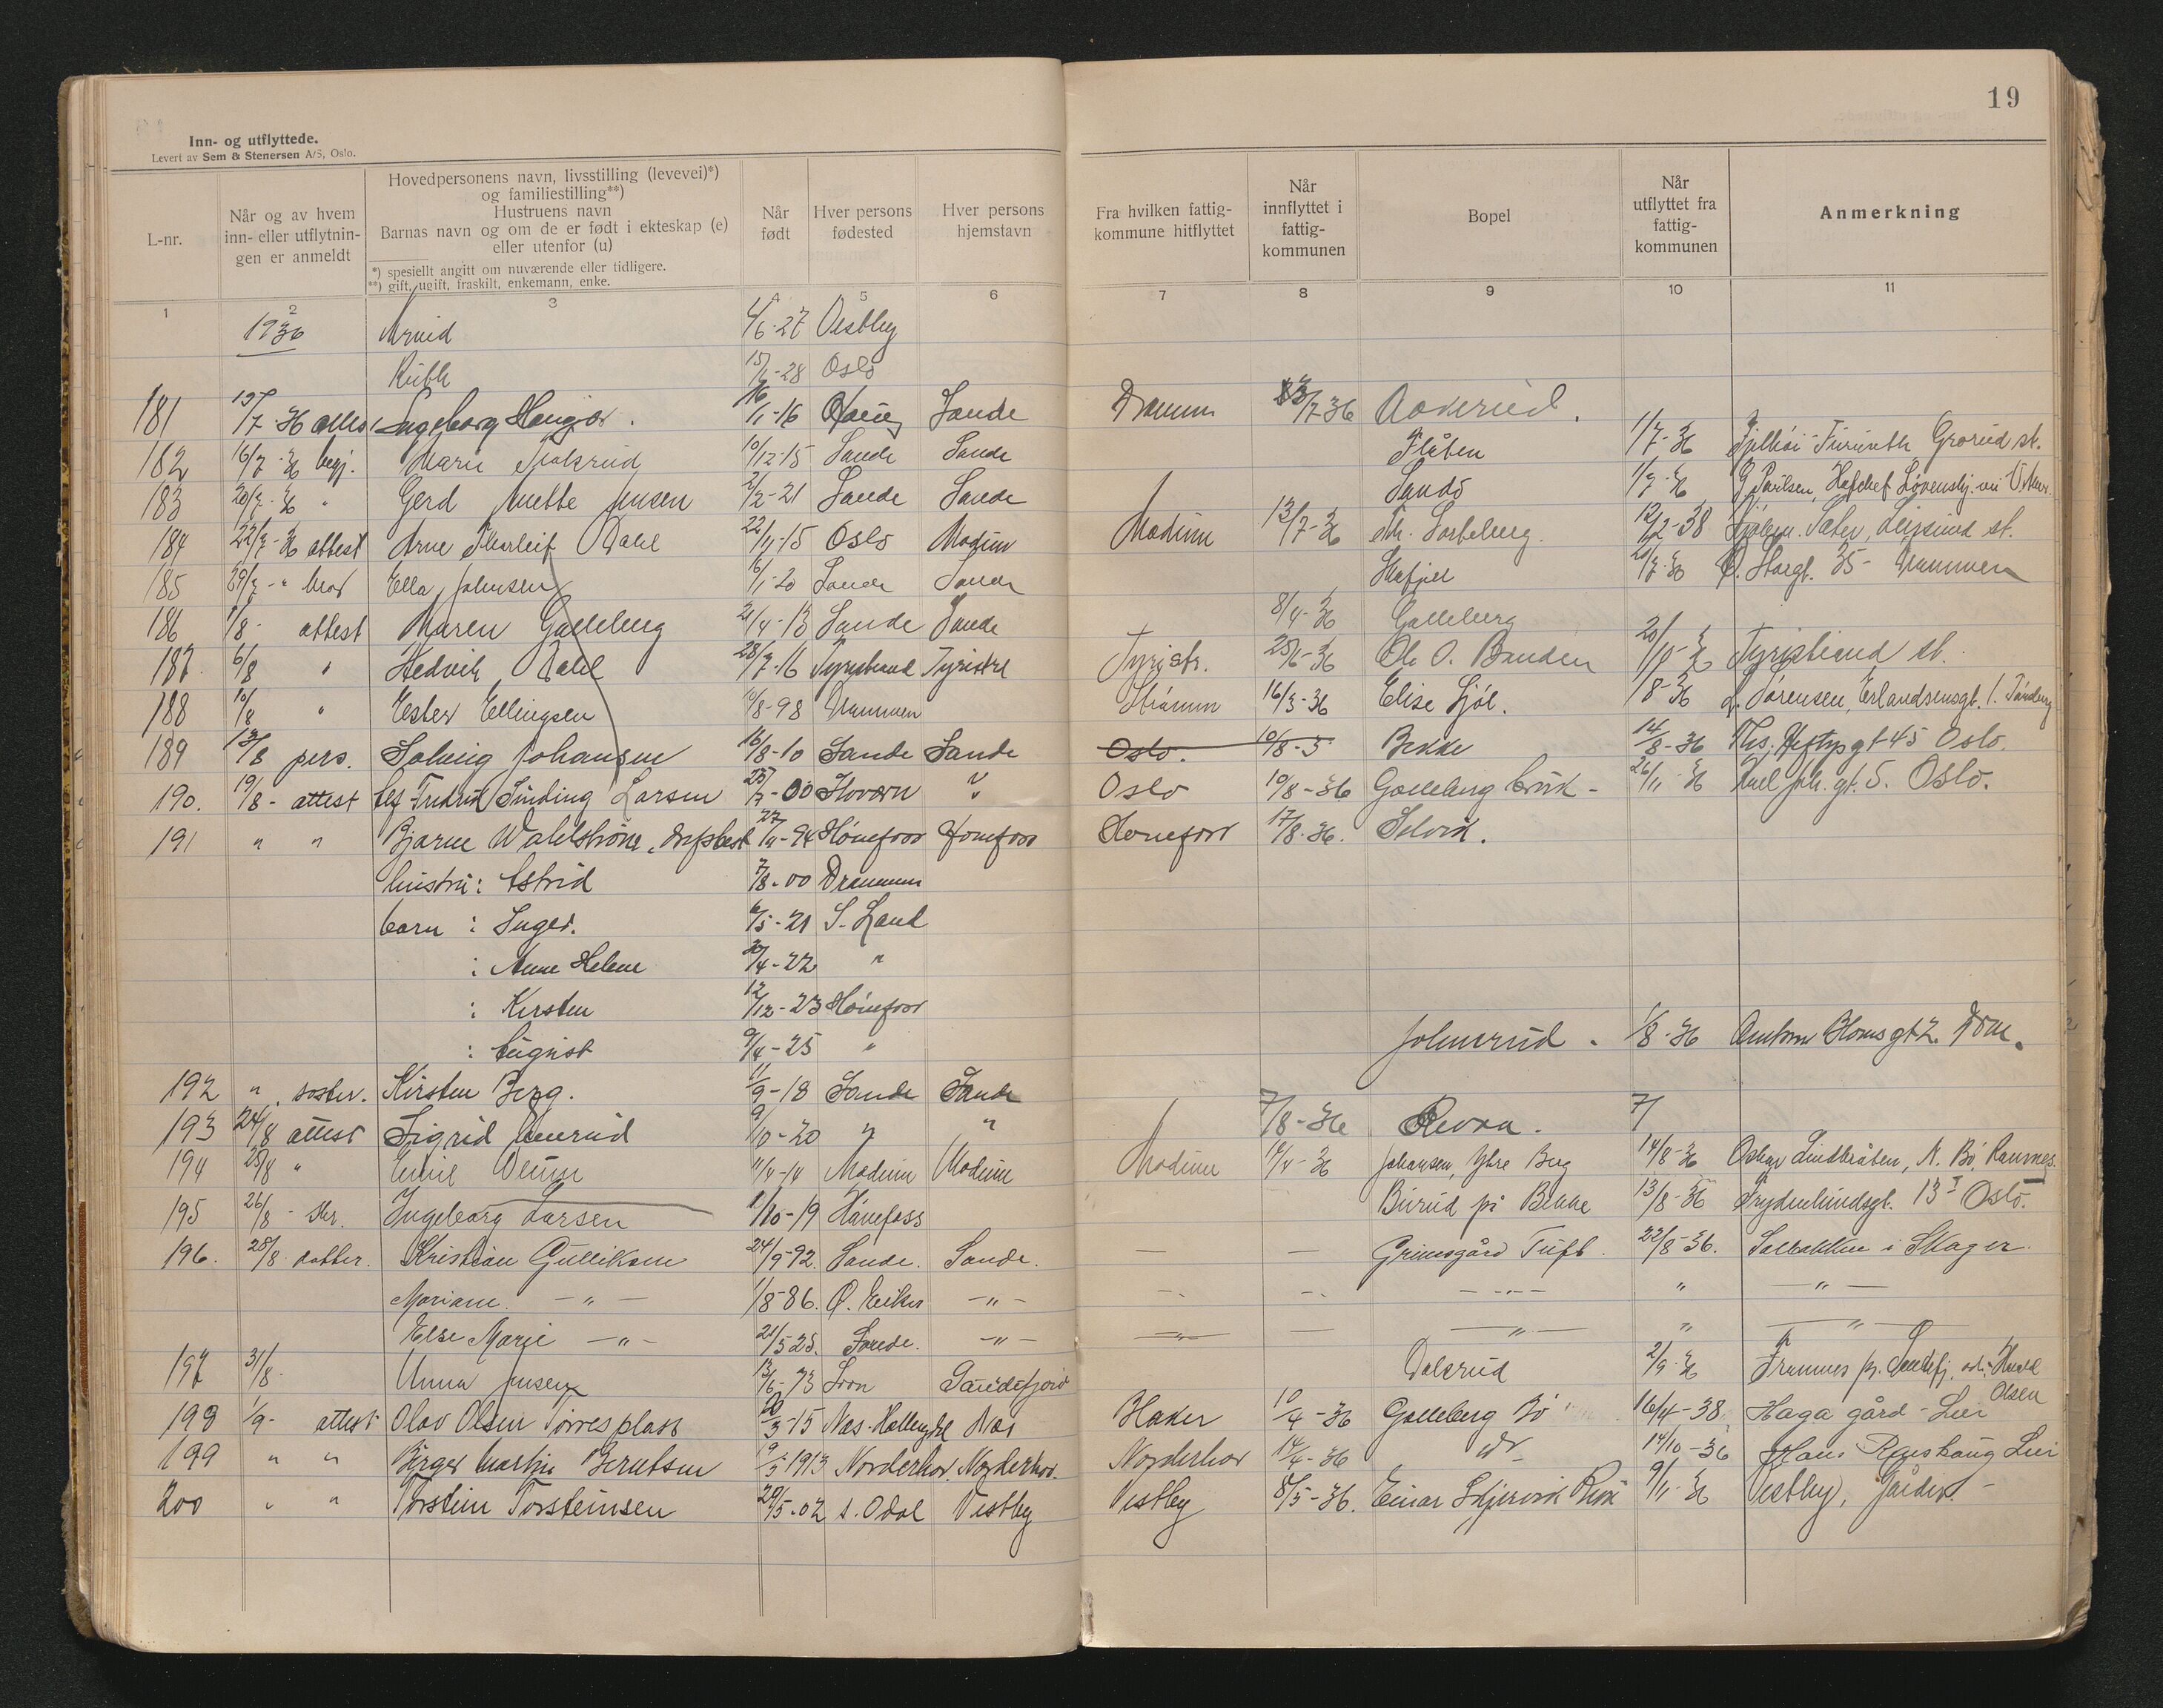 19
Inn- og utflyttede.
Levert av Sem & Stenersen A/S, Oslo.
L-nr.
Når og av hvem inn- eller utflytnin- gen er anmeldt
Hovedpersonens navn, livsstilling (levevei)*) og familiestilling**)
Hustruens navn
Barnas navn og om de er født i ekteskap (e) eller utenfor (u)
*) spesiellt angitt om nuværende eller tidligere.
**) gift, ugift, fraskilt, enkemann, enke.
Når født
Hver persons fødested
Hver persons hjemstavn
Fra hvilken fattig- kommune hitflyttet
Når innflyttet i fattig- kommunen
Bopel
Når utflyttet fra fattig- kommunen
Anmerkning
1 2 3 4 5 6 7 8 9 10 11
1936 Arvid 4/6-27 Vestby
Ruth 28 Oslo
181 15/7-36 attest Ingeborg 16/1-16 Sande Dramm 7 36
182 16/7-36 begj. Marie 10/12-15 Sande Sande Flåten 1/7-36 Grorud st.
183 20/7-36 " Gerd Anette Jensen 2/2-21 Sande Sande Sando 1/7-36
184 22/7-36 attest Arne Tharleif Dahl 22/11-15 Oslo Modum Modum 13/7-36 12/2-38
185 29/7-" Ella Johnsen 6/1-20 Sande Sande 35 - Drammen
186 1/8- attest Maren Galleberg 21/4-13 Sande Sande 8/4-36 Galleberg
187 6/8 " Hedvik Dahl 28/7-16 Tyristrand Tyristrd Tyristr. 25/6-36 Ole O. Banden 20/10-36 Tyristrand st.
188 10/8 " Ester Ellingsen 8-98 Drammen Strømm 16/3-36 Elise Sjøl. 8-36 Sørensen, Erlandsensgt. 1. Tønsberg
189 13/8 pers. Solveig Johansen 16/8-10 Sande Sande Oslo. 10/8-3 Bekke 14/8-36 Ths. Heftyes gt 45 Oslo.
190. 19/8- attest Alf Fredrik Sinding Larsen 25/7-00 Hoværn " Oslo 10/8-36 Galleberg bruk - 26/11-36 gt. 5. Oslo.
191 " " Bjarne Wahlstrøm, 27/11-94 Hønefoss Hønefoss Hønefoss 17/8-36. Selvik.
hustru: Astrid 7/8-00 Drammen
barn : Inger. 6/5-21 S. Land
: Anne Helene 30/4-22 "
: Kirsten 12/12-23 Hønefoss
: August 9/4-25 "
192 " søster. Kirsten Berg. 11/9-18 Sande Sande Johnsrud. 1/8-36 Anton Bloms gt 2. Drm.
193 24/8 attest Sigrid 9/10-20 " " 7/8-36 Revaa. 7/
194 25/8 " Emil 11/4-14 Modum Modum Modum 14/4-36 Johansen, Ytre Berg 14/8-36 Oskar Lindbråten, N. Bø, Ramnes.
195 26/8 - Skr. Ingeborg Larsen 1/10-19 Hånefoss Burud på Bekke 13/8-36 Frydenlundsgt. 13 I Oslo.
196. 28/8 datter. Kristian Gulliksen 24/9 92. Sande. Sande. — — Grimsgård Tuft. 22/8-36. Solbakken i Skoger
Mariane. — " — 1/8-86. Ø. Eiker — " — — — — " — " — " —
Else Marie — " — 21/5 25. Sande. — " — — — — " — " — " —
197 31/8- Anna Jensen 13/6-73 Sandefjord Dalsrud 2/9-36 Framnes pr. Sandefj. Olsen
198 1/9- attest Olav Olsen Torresplass 3-15 Nes-Hallingdl Nes Haker 10/4-36 Galleberg Bø 16/4-38 Haga gård - Lier
199 " " Birger Martin Berntsen 9/5 1913 Norderhov. Norderhov. Norderhov 14/4-36 14/10-36 Hans Lier
200 " " Torstein Torsteinsen 29/5-02 s. Odal Vestby Vestby 8/5-36. Einar 9/11-36 Vestby,